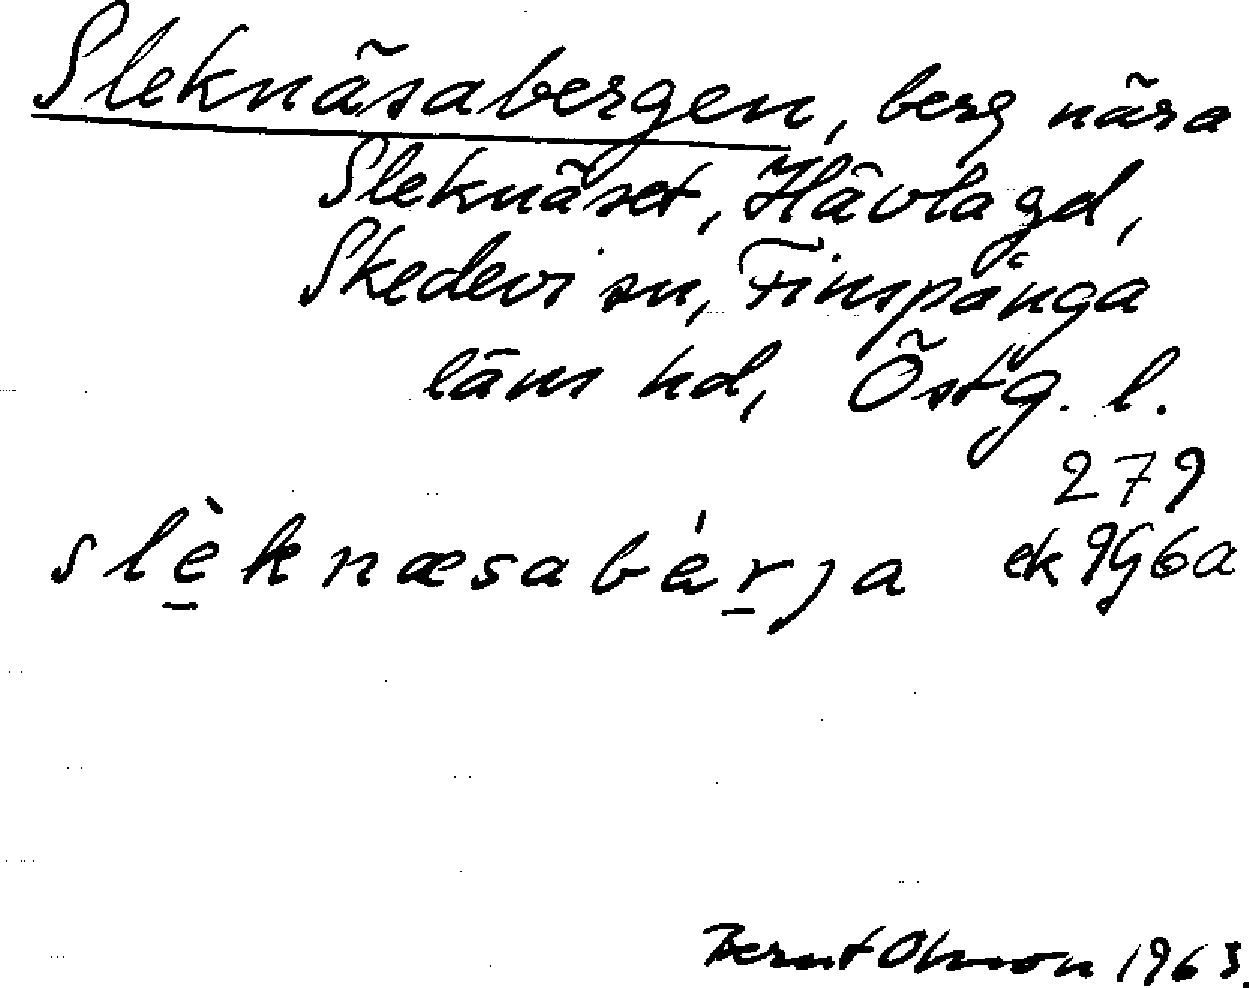 Sleknäsabergen, berg nära
Sleknäset, Hävlagd,
Skedevi sn, Finspånga
läns hd, Östg. l.
279
ek 9G6a
slèknæsabárja
Bernt Olsson 1963.